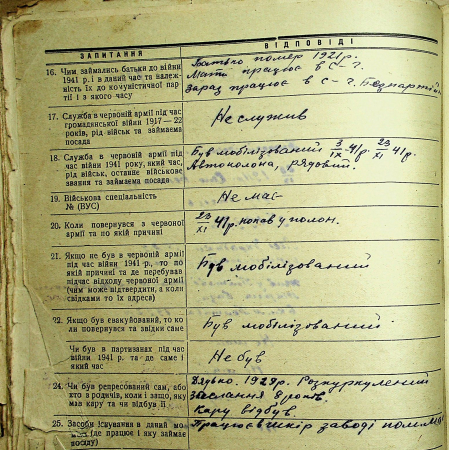 ЗАПИТАННЯ
ВІДПОВІДІ
16. Чим займались батьки до війни
1941 р. і в даний час та належ-
ність їх до комуністичної пар-
тії і з якого часу
Батько помер 1921 р.
Мати працює в С-г.
зараз працює в с-г. Безпартій
17. Служба в червоній армії під час
громадянської війни 1917—22
років, рід військ та займаєма
посада
Не служив
18. Служба в червоній армії під
час війни 1941 року, який час,
рід військ, останнє військове
звання та займаєма посада
Був мобілізований 3/IX-41р. 23/XI 41р.
Автоколона, рядовий.
19. Військова спеціальність
№ (ВУС)
Не має
20. Коли повернувся з червоної
армії та по якій причині
23/XI 41р. попав у полон.
21. Якщо не був в червоній армії
під час війни 1941 р., то по
якій причині та де перебував
підчас відходу червоної армії
(чим може підтвердити, а коли
свідками то їх адреса)
Був мобілізований
22. Якщо був евакуйований, то ко-
ли повернувся та звідки саме
Був мобілізований
Чи був в партизанах під час
війни 1941 р. та де саме і
який час
Не був
24. Чи був репресований сам, або
хто з родичів, коли і защо, яку
мав кару та чи відбув її
Дядько. 1929р. Розкуркулений
заслання 8 років.
Кару відбув.
25. Засоби існування в даний мо-
мент (де працює і яку займає
посаду)
Працює шкір заводі